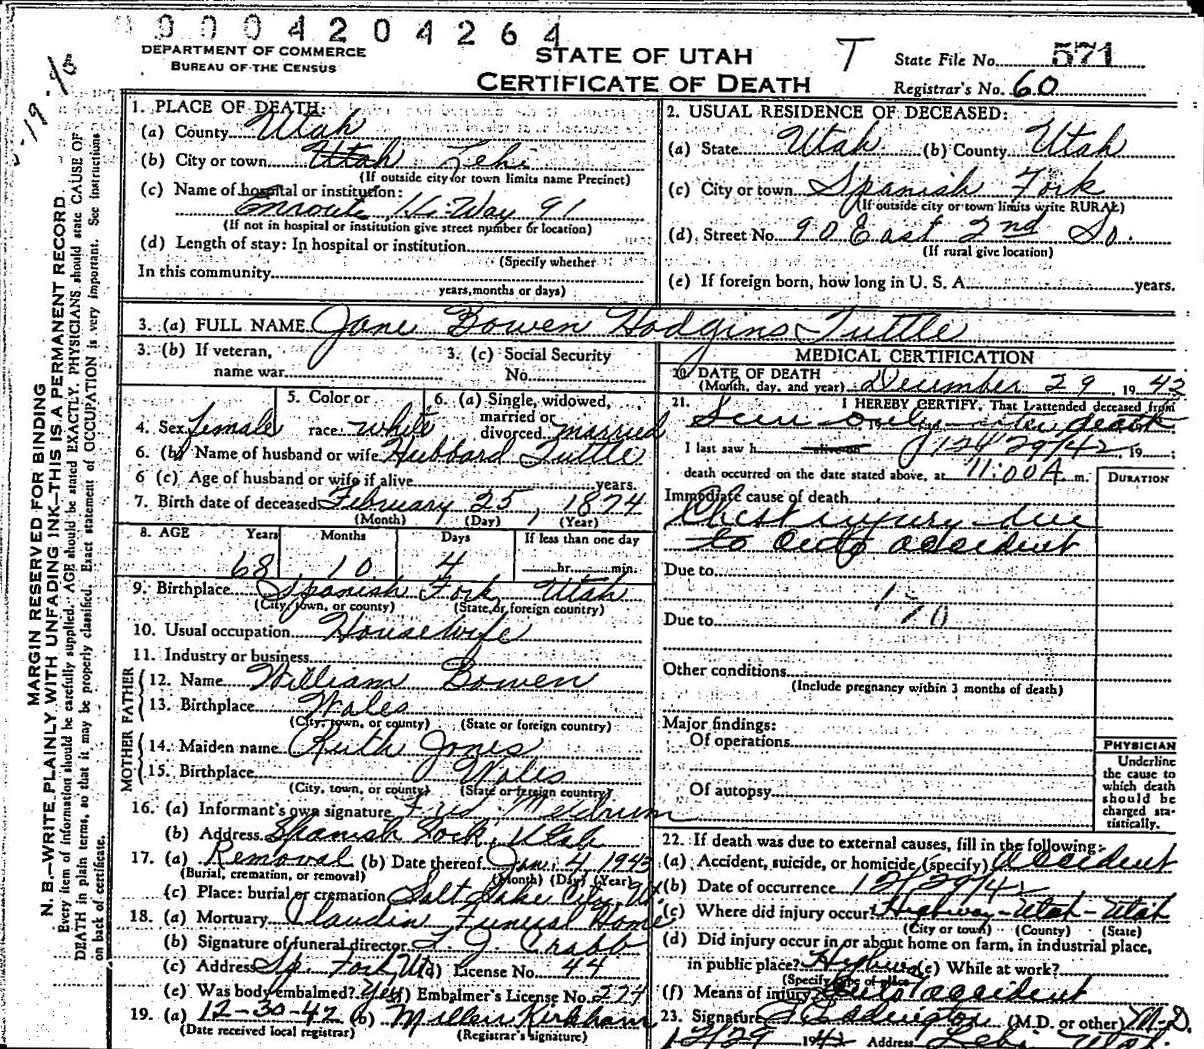 0004204264
DEPARTMENT OF COMMERCE
BUREAU OF THE CENSUS
STATE OF UTAH
CERTIFICATE OF DEATH
T
State File No. 571
Registrar's No. 60
MARGIN RESERVED FOR BINDING
N. B.—WRITE PLAINLY, WITH UNFADING INK—THIS IS A PERMANENT RECORD
Every item of information should be carefully supplied. AGE should be stated EXACTLY. PHYSICIANS should state CAUSE OF
DEATH in plain terms, so that it may be properly classified. Exact statement of OCCUPATION is very important. See instructions
on back of certificate.
1. PLACE OF DEATH:
(a) County Utah
(b) City or town Utah Lehi
(If outside city or town limits name Precinct)
(c) Name of hospital or institution:
Enroute Hi-Way 91
(If not in hospital or institution give street number or location)
(d) Length of stay: In hospital or institution
(Specify whether
In this community
years, months or days)
2. USUAL RESIDENCE OF DECEASED:
(a) State Utah (b) County Utah
(c) City or town Spanish Fork
(If outside city or town limits write RURAL)
(d) Street No. 90 East 2nd So.
(If rural give location)
(e) If foreign born, how long in U. S. A. years.
3. (a) FULL NAME Jane Bowen Hodgins Tuttle
3. (b) If veteran,
name war
3. (c) Social Security
No.
4. Sex female
5. Color or
race white
6. (a) Single, widowed,
married or
divorced married
6. (b) Name of husband or wife Hubbard Tuttle
6 (c) Age of husband or wife if alive years.
7. Birth date of deceased February 25, 1874
(Month) (Day) (Year)
8. AGE Years Months Days If less than one day
68 10 4 hr. min.
9. Birthplace Spanish Fork Utah
(City, town, or county) (State, or foreign country)
10. Usual occupation Housewife
11. Industry or business
FATHER
12. Name William Bowen
13. Birthplace Wales
(City, town, or county) (State or foreign country)
MOTHER
14. Maiden name Ruth Jones
15. Birthplace Wales
(City, town, or county) (State or foreign country)
16. (a) Informant's own signature Fred Meldrum
(b) Address Spanish Fork, Utah
17. (a) Removal (b) Date thereof Jan. 4 1943
(Burial, cremation, or removal) (Month) (Day) (Year)
(c) Place: burial or cremation Salt Lake City, Ut
18. (a) Mortuary Claudin Funeral Home
(b) Signature of funeral director
(c) Address Sp. Fork, Ut (d) License No. 44
(e) Was body embalmed? Yes (f) Embalmer's License No. 274
19. (a) 12-30-42 (b) Kirkham
(Date received local registrar) (Registrar's signature)
MEDICAL CERTIFICATION
20. DATE OF DEATH
(Month, day, and year) December 29, 1942
21. I HEREBY CERTIFY, That I attended deceased from
Seen only after death
I last saw h alive on 12/29/42 19 ;
death occurred on the date stated above, at 11:00 A m.
DURATION
Immediate cause of death
Chest injury due
to auto accident
Due to
170
Due to
Other conditions
(Include pregnancy within 3 months of death)
Major findings:
Of operations
Of autopsy
PHYSICIAN
Underline
the cause to
which death
should be
charged sta-
tistically.
22. If death was due to external causes, fill in the following:
(a) Accident, suicide, or homicide (specify) Accident
(b) Date of occurrence 12/29/42
(c) Where did injury occur? Highway-Utah-Utah
(City or town) (County) (State)
(d) Did injury occur in or about home on farm, in industrial place,
in public place? Highway (e) While at work?
(Specify type of place)
(f) Means of injury Auto accident
23. Signature Eddington (M.D. or other) M.D.
12/29 1942 Address Lehi Utah.